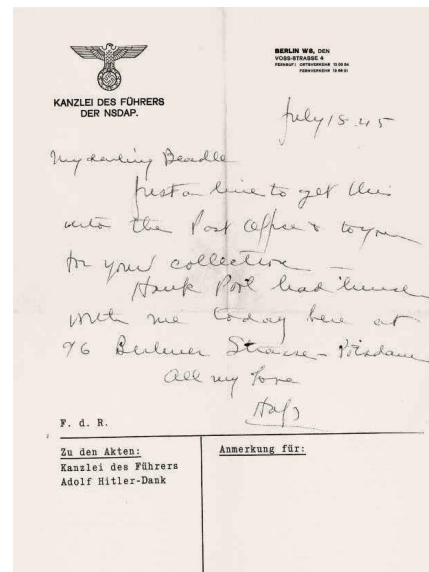 KANZLEI DES FÜHRERS
DER NSDAP.
BERLIN W8, DEN
VOSS-STRASSE 4
FERNRUF: ORTSVERKEHR 12 00 54
FERNVERKEHR
July 18 45
My darling Beadle
Just a line to get this
into the Post Office & to you
for your collection —
had lunch
with me today here at
96 Berliner Strasse – Potsdam
All my love
F. d. R.
Zu den Akten:
Kanzlei des Führers
Adolf Hitler-Dank
Anmerkung für: